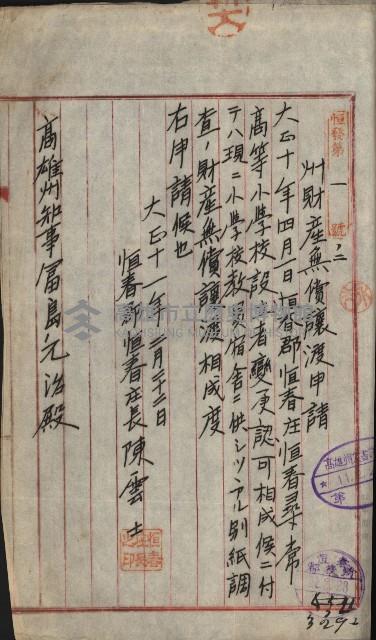 恒發第一號ノ二
州財産無償讓渡申請
大正十年四月日恒春郡恒春庄恒春尋常
高等小學校設者變更認可相成候ニ付
テハ現ニ小學校教宿舍ニ供シツヽアル別紙調
查ノ財産無償讓渡相成度
右申請候也
大正十一年二月二十二日
恒春郡恒春庄長陳雲士
高雄州知事富島元治殿
恒春庄長之印
高雄市立歷史博物館
KAOHSIUNG MUSEUM OF HISTORY
3292